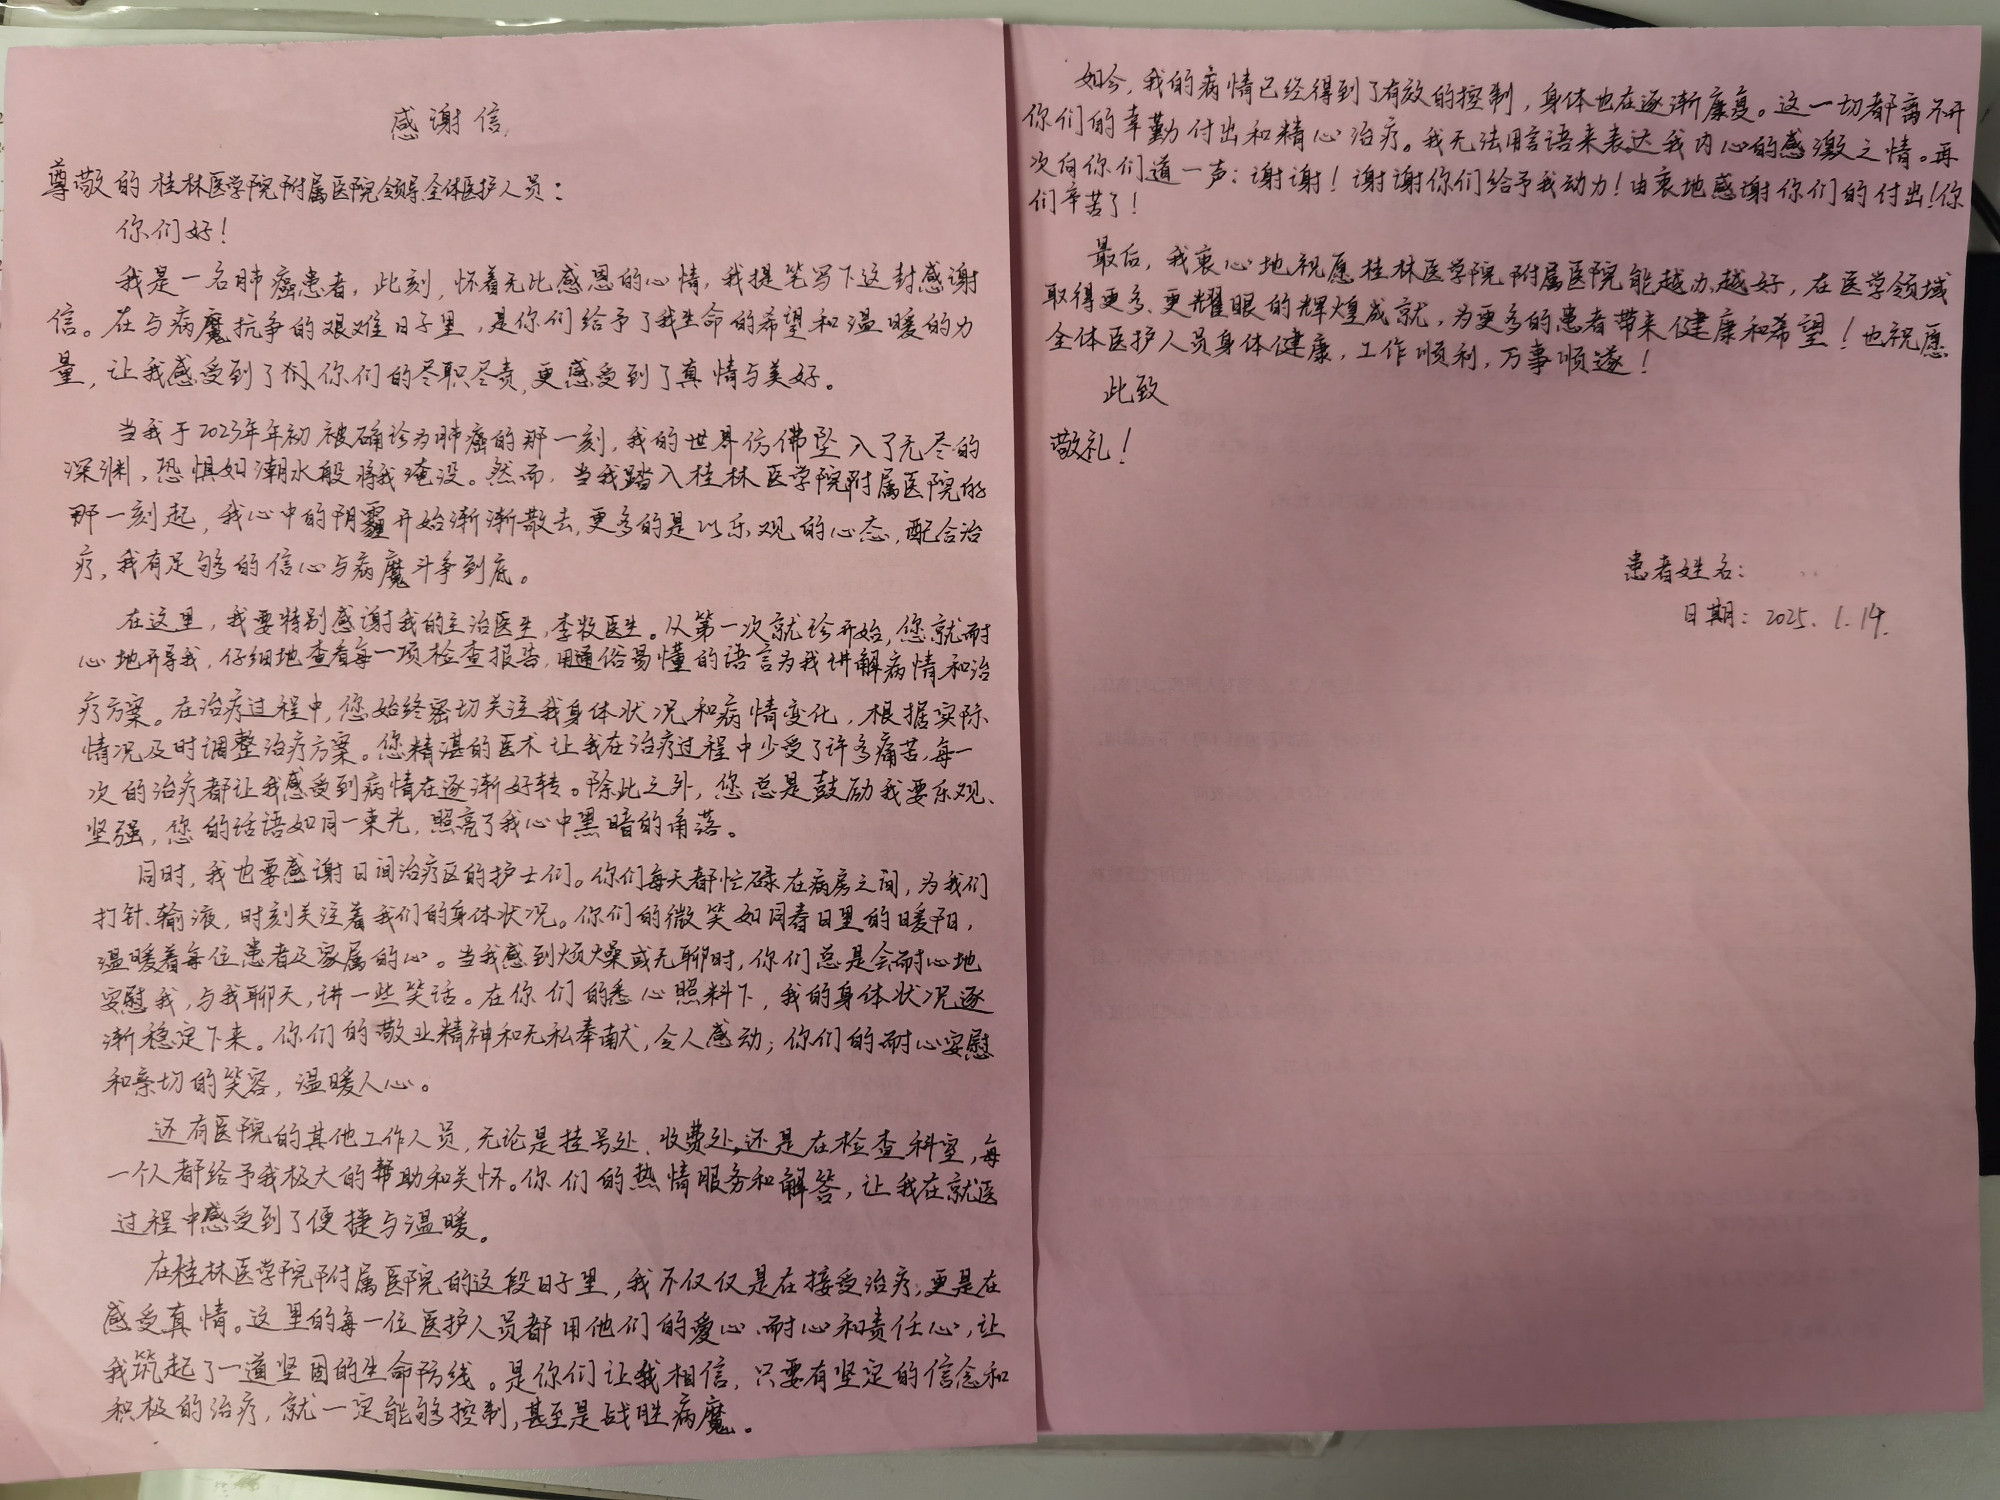 感谢信
尊敬的桂林医学院附属医院领导、全体医护人员：
你们好！
我是一名肺癌患者，此刻，怀着无比感恩的心情，我提笔写下这封感谢
信。在与病魔抗争的艰难日子里，是你们给予了我生命的希望和温暖的力
量，让我感受到了你们的尽职尽责，更感受到了真情与美好。
当我于2023年年初被确诊为肺癌的那一刻，我的世界仿佛坠入了无尽的
深渊，恐惧如潮水般将我淹没。然而，当我踏入桂林医学院附属医院的
那一刻起，我心中的阴霾开始渐渐散去，更多的是以乐观的心态，配合治
疗，我有足够的信心与病魔斗争到底。
在这里，我要特别感谢我的主治医生，李牧医生。从第一次就诊开始，您就耐
心地开导我，仔细地查看每一项检查报告，用通俗易懂的语言为我讲解病情和治
疗方案。在治疗过程中，您始终密切关注我身体状况和病情变化，根据实际
情况及时调整治疗方案。您精湛的医术让我在治疗过程中少受了许多痛苦，每一
次的治疗都让我感受到病情在逐渐好转。除此之外，您总是鼓励我要乐观、
坚强，您的话语如同一束光，照亮了我心中黑暗的角落。
同时，我也要感谢日间治疗区的护士们。你们每天都忙碌在病房之间，为我们
打针、输液，时刻关注着我们的身体状况。你们的微笑如同春日里的暖阳，
温暖着每位患者及家属的心。当我感到烦燥或无聊时，你们总是会耐心地
安慰我，与我聊天，讲一些笑话。在你们的悉心照料下，我的身体状况逐
渐稳定下来。你们的敬业精神和无私奉献，令人感动；你们的耐心安慰
和亲切的笑容，温暖人心。
还有医院的其他工作人员，无论是挂号处、收费处，还是在检查科室，每
一个人都给予我极大的帮助和关怀。你们的热情服务和解答，让我在就医
过程中感受到了便捷与温暖。
在桂林医学院附属医院的这段日子里，我不仅仅是在接受治疗，更是在
感受真情。这里的每一位医护人员都用他们的爱心、耐心和责任心，让
我筑起了一道坚固的生命防线。是你们让我相信，只要有坚定的信念和
积极的治疗，就一定能够控制，甚至是战胜病魔。
如今，我的病情已经得到了有效的控制，身体也在逐渐康复。这一切都离不开
你们的辛勤付出和精心治疗。我无法用言语来表达我内心的感激之情。再
次向你们道一声：谢谢！谢谢你们给予我动力！由衷地感谢你们的付出！你
们辛苦了！
最后，我衷心地祝愿桂林医学院附属医院能越办越好，在医学领域
取得更多、更耀眼的辉煌成就，为更多的患者带来健康和希望！也祝愿
全体医护人员身体健康，工作顺利，万事顺遂！
此致
敬礼！
患者姓名：
日期：2025.1.14.